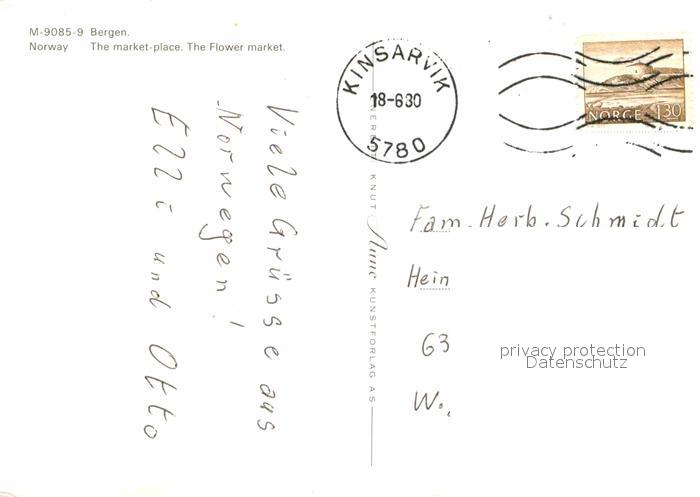 M-9085-9 Bergen.
Norway The market-place. The Flower market.
KINSARVIK
18-6 30
5780
NORGE 130
Viele Grüsse aus
Norwegen!
Elli und Otto
ENERET KNUT Aune KUNSTFORLAG AS
Fam. Herb. Schmidt
Hein
63
W.
privacy protection
Datenschutz